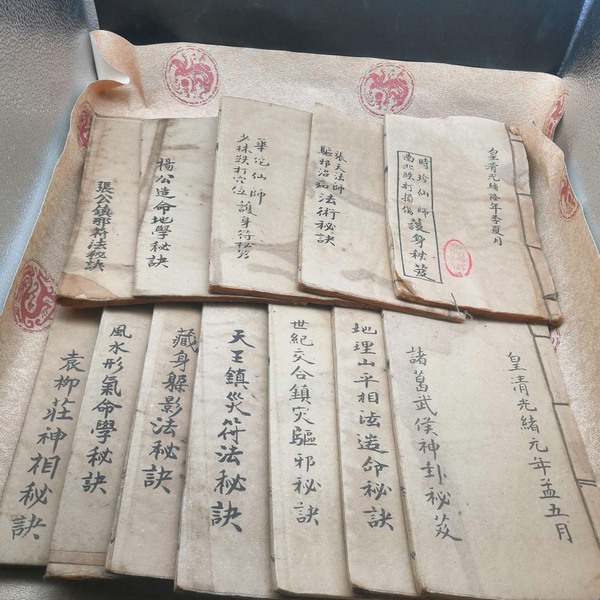 皇清光緒陸年季夏月
時珍仙師
南北跌打損傷
護身秘芨
張天法師
驅邪治
法術秘訣
華佗仙師
少林跌打穴位
護身符秘訣
楊公造命地學秘訣
張公鎮邪符法秘訣
皇清光緒元年孟五月
諸葛武侯神卦秘芨
地理山平相法造命秘訣
世紀交合鎮灾驅邪秘訣
天王鎮災符法秘訣
藏身躲影法秘訣
風水形氣命學秘訣
袁柳莊神相秘訣